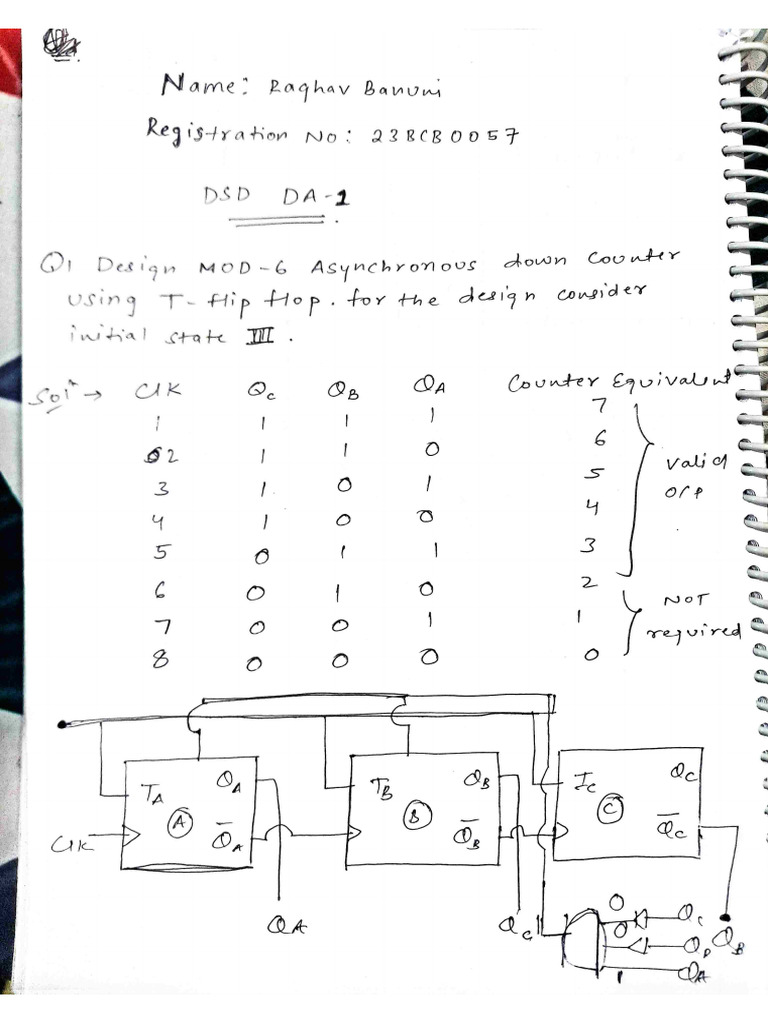 Name: Raghav Banuni
Registration No: 23BCB0057
DSD DA-1
Q1 Design MOD-6 Asynchronous down Counter
using T-flip flop. for the design consider
initial state III.
Sol^n → ClK Qc QB QA Counter Equivalent
1 1 1 1 7
2 1 1 0 6
3 1 0 1 5
4 1 0 0 4
5 0 1 1 3
6 0 1 0 2
7 0 0 1 1
8 0 0 0 0
Valid
O/P
NOT
required
TA QA TB QB Ic Qc
A B C
ClK Q̅A Q̅B Q̅c
QA Qc QB
0 Qc
0
1 QA